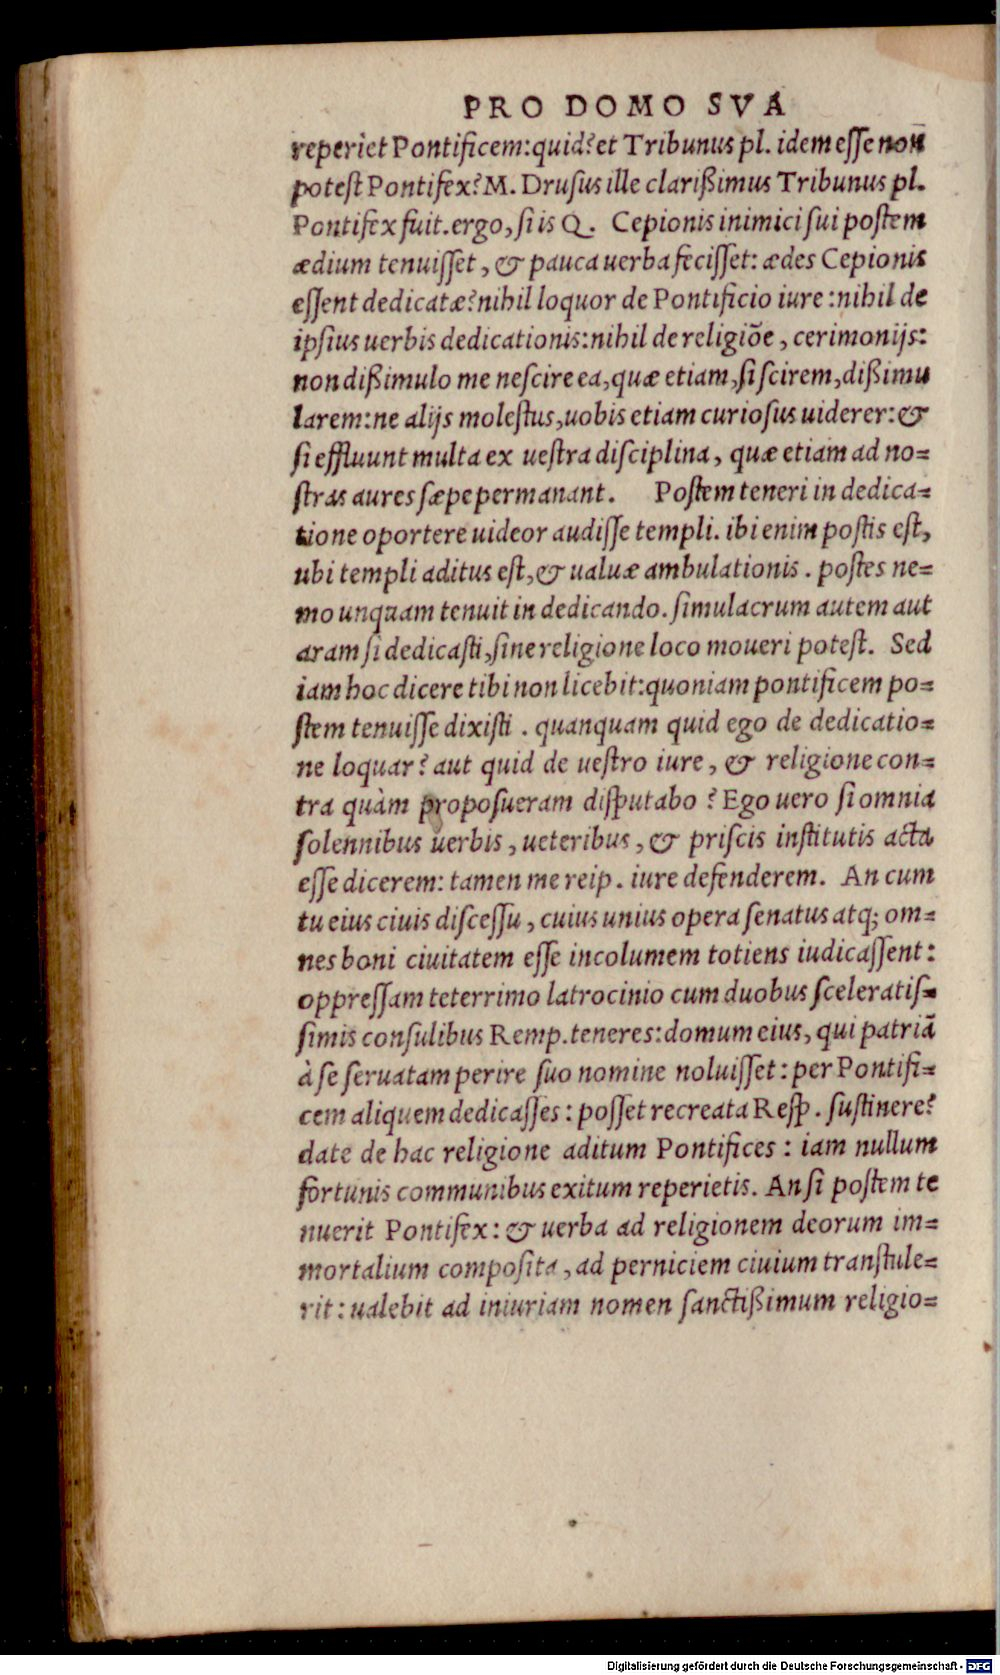 PRO DOMO SVA
reperiet Pontificem: quid? et Tribunus pl. idem esse non
potest Pontifex? M. Drusus ille clarißimus Tribunus pl.
Pontifex fuit. ergo, si is Q. Cepionis inimici sui postem
ædium tenuisset, & pauca uerba fecisset: ædes Cepionis
essent dedicatæ? nihil loquor de Pontificio iure: nihil de
ipsius uerbis dedicationis: nihil de religiõe, cerimonijs:
non dißimulo me nescire ea, quæ etiam, si scirem, dißimu
larem: ne alijs molestus, uobis etiam curiosus uiderer: &
si effluunt multa ex uestra disciplina, quæ etiam ad no=
stras aures sæpe permanant. Postem teneri in dedica=
tione oportere uideor audisse templi. ibi enim postis est,
ubi templi aditus est, & ualuæ ambulationis. postes ne=
mo unquam tenuit in dedicando. simulacrum autem aut
aram si dedicasti, sine religione loco moueri potest. Sed
iam hoc dicere tibi non licebit: quoniam pontificem po=
stem tenuisse dixisti. quanquam quid ego de dedicatio=
ne loquar? aut quid de uestro iure, & religione con=
tra quàm proposueram disputabo? Ego uero si omnia
solennibus uerbis, ueteribus, & priscis institutis acta
esse dicerem: tamen me reip. iure defenderem. An cum
tu eius ciuis discessu, cuius unius opera senatus atq; om=
nes boni ciuitatem esse incolumem totiens iudicassent:
oppressam teterrimo latrocinio cum duobus sceleratis=
simis consulibus Remp. teneres: domum eius, qui patriã
à se seruatam perire suo nomine noluisset: per Pontifi=
cem aliquem dedicasses: posset recreata Resp. sustinere?
date de hac religione aditum Pontifices: iam nullum
fortunis communibus exitum reperietis. An si postem te
nuerit Pontifex: & uerba ad religionem deorum im=
mortalium composita, ad perniciem ciuium transtule=
rit: ualebit ad iniuriam nomen sanctißimum religio=
Digitalisierung gefördert durch die Deutsche Forschungsgemeinschaft - DFG